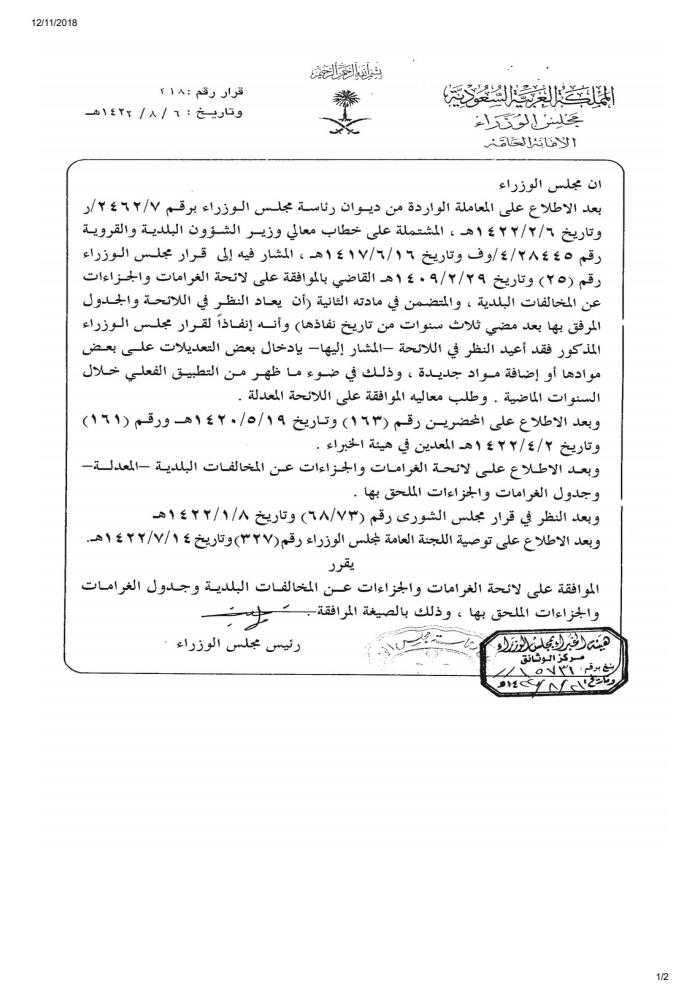 12/11/2018
بسم الله الرحمن الرحيم
المملكة العربية السعودية
مجلس الوزراء
الأمانة العامة
قرار رقم : ٢١٨
وتاريخ : ٦ / ٨ / ١٤٢٢هـ
ان مجلس الوزراء
بعد الاطلاع على المعاملة الواردة من ديوان رئاسة مجلس الوزراء برقم ٢٤٦٢/٧/ر
وتاريخ ١٤٢٢/٢/٦هـ ، المشتملة على خطاب معالي وزير الشؤون البلدية والقروية
رقم ٤/٢٨٤٤٥/وف وتاريخ ١٤١٧/٦/١٦هـ ، المشار فيه إلى قرار مجلس الوزراء
رقم (٢٥) وتاريخ ١٤٠٩/٢/٢٩هـ القاضي بالموافقة على لائحة الغرامات والجزاءات
عن المخالفات البلدية ، والمتضمن في مادته الثانية (أن يعاد النظر في اللائحة والجدول
المرفق بها بعد مضي ثلاث سنوات من تاريخ نفاذها) وأنــه إنفــاذاً لقــرار مجلــس الــوزراء
المذكور فقد أعيد النظر في اللائحة –المشار إليها– بإدخال بعض التعديلات علــى بعــض
موادها أو إضافة مـواد جديـدة ، وذلـك في ضـوء مـا ظهـر مـن التطبيـق الفعلـي خـلال
السنوات الماضية . وطلب معاليه الموافقة على اللائحة المعدلة .
وبعد الاطلاع على المحضريــن رقــم (١٦٣) وتـاريخ ١٤٢٠/٥/١٩هــ ورقـم (١٦١)
وتاريخ ١٤٢٢/٤/٢هـ المعدين في هيئة الخبراء .
وبعـد الاطـلاع علـى لائحـة الغرامـات والجـزاءات عـن المخالفـات البلديـة –المعدلـة–
وجدول الغرامات والجزاءات الملحق بها .
وبعد النظر في قرار مجلس الشورى رقم (٦٨/٧٣) وتاريخ ١٤٢٢/١/٨هـ
وبعد الاطلاع على توصية اللجنة العامة لمجلس الوزراء رقم(٣٢٧)وتاريخ١٤٢٢/٧/١٤هـ.
يقرر
الموافقة على لائحة الغرامات والجزاءات عـن المخالفـات البلديـة وجـدول الغرامـات
والجزاءات الملحق بها ، وذلك بالصيغة المرافقة.
رئيس مجلس الوزراء
هيئة الخبراء بمجلس الوزراء
مركز الوثائق
وتاريخ:
1/2